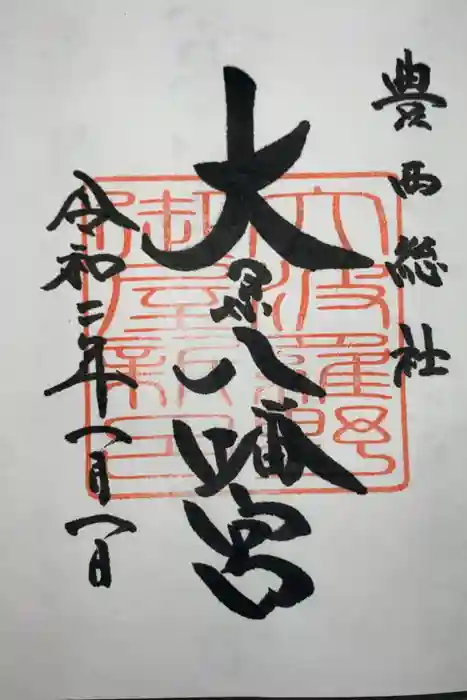 豊西総社
大原八幡宮
令和二年八月八日